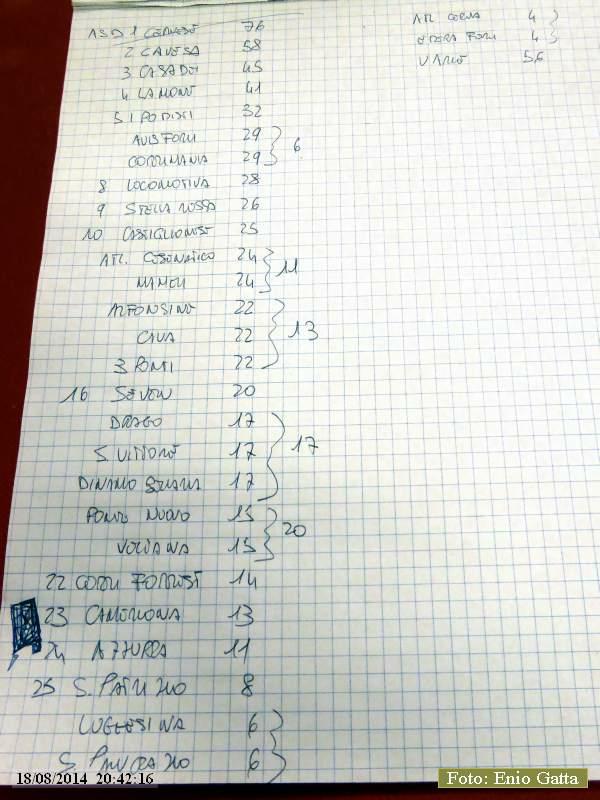 ASD 1 CERVESE 76
2 CAVEJA 58
3 CASADEI 45
4 LAMONE 41
5 I PODISTI 32
AVIS FORLI 29
CORRIMANIA 29
6
8 LOCOMOTIVA 28
9 STELLA ROSSA 26
10 CASTIGLIONESE 25
ATL. CESENATICO 24
MAMELI 24
11
ALFONSINE 22
CAVA 22
3 PONTI 22
13
16 SEVEN 20
DRAGO 17
S. VITTORE 17
DINAMO 17
17
PONTE NUOVO 15
VOLTANA 15
20
22 CORRI FORREST 14
23 CAMERLONA 13
24 AZZURRA 11
25 S. PATRIZIO 8
LUGHESINA 6
S. PANCRAZIO 6
ATL 4
EDERA FORLI 4
VARIE 56
18/08/2014 20:42:16
Foto: Enio Gatta